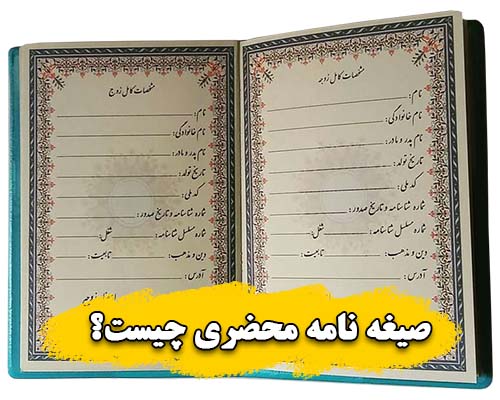 مشخصات کامل زوجه
نام:
نام خانوادگی:
نام پدر و مادر:
تاریخ تولد:
کد ملی:
شماره شناسنامه و تاریخ صدور:
شماره مسلسل شناسنامه: شغل:
دین و مذهب: تابعیت:
آدرس:
مشخصات کامل زوج
نام:
نام خانوادگی:
نام پدر و مادر:
تاریخ تولد:
کد ملی:
شماره شناسنامه و تاریخ صدور:
شماره مسلسل شناسنامه: شغل:
دین و مذهب: تابعیت:
آدرس:
صیغه نامه محضری چیست؟